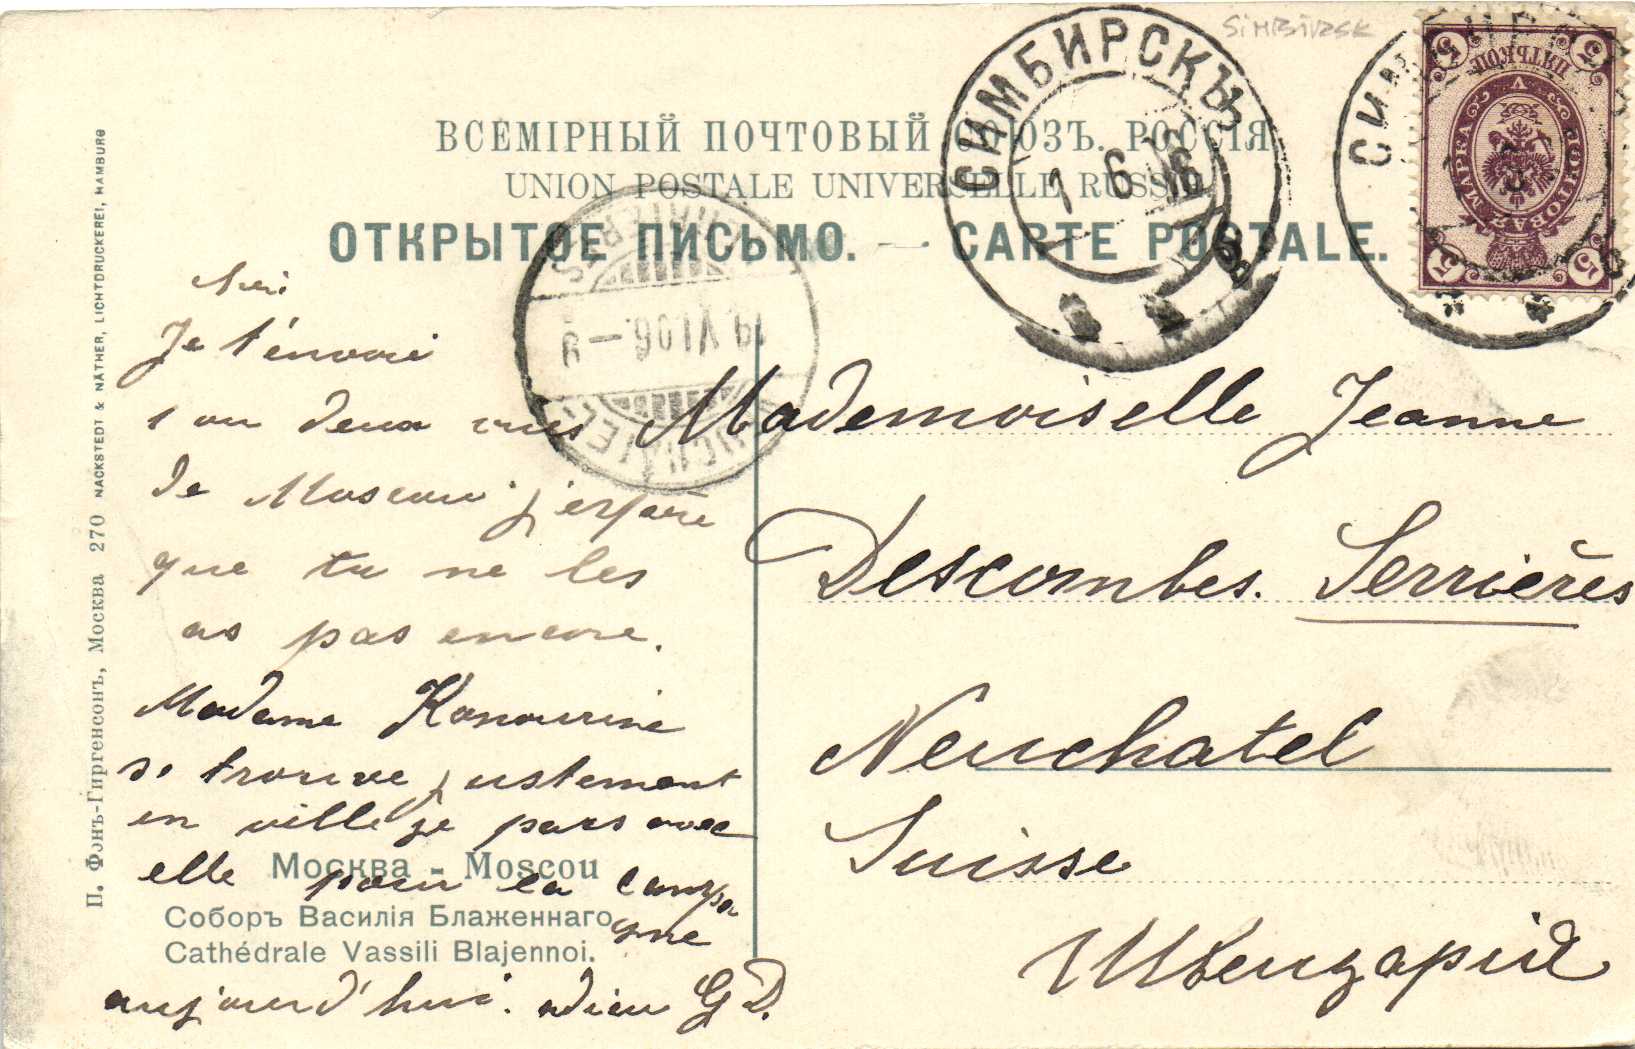 SIMBIRSK
ВСЕМІРНЫЙ ПОЧТОВЫЙ СОЮЗЪ. РОССІЯ
UNION POSTALE UNIVERSELLE RUSSIE
ОТКРЫТОЕ ПИСЬМО. — CARTE POSTALE.
СИМБИРСКЪ
1 6 06
СИМБИРСКЪ
5 5
ПЯТЬ КОП.
ПОЧТОВАЯ МАРКА
5 5
SERRIÈRES
19 VI 06 — 8
NEUCHATEL
Je t'envoie
1 ou deux vues
de Moscou j'espère
que tu ne les
as pas encore.
Madame Konourine
se trouve justement
en ville je pars avec
elle pour la campa
gne
aujourd'hui. adieu G D.
Mademoiselle Jeanne
Descombes. Serrières
Neuchatel
Suisse
Швейцарія
Москва - Moscou
Соборъ Василія Блаженнаго
Cathédrale Vassili Blajennoi.
П. Фонъ-Гиргенсонъ, Москва 270 NACKSTEDT & NÄTHER, LICHTDRUCKEREI, HAMBURG